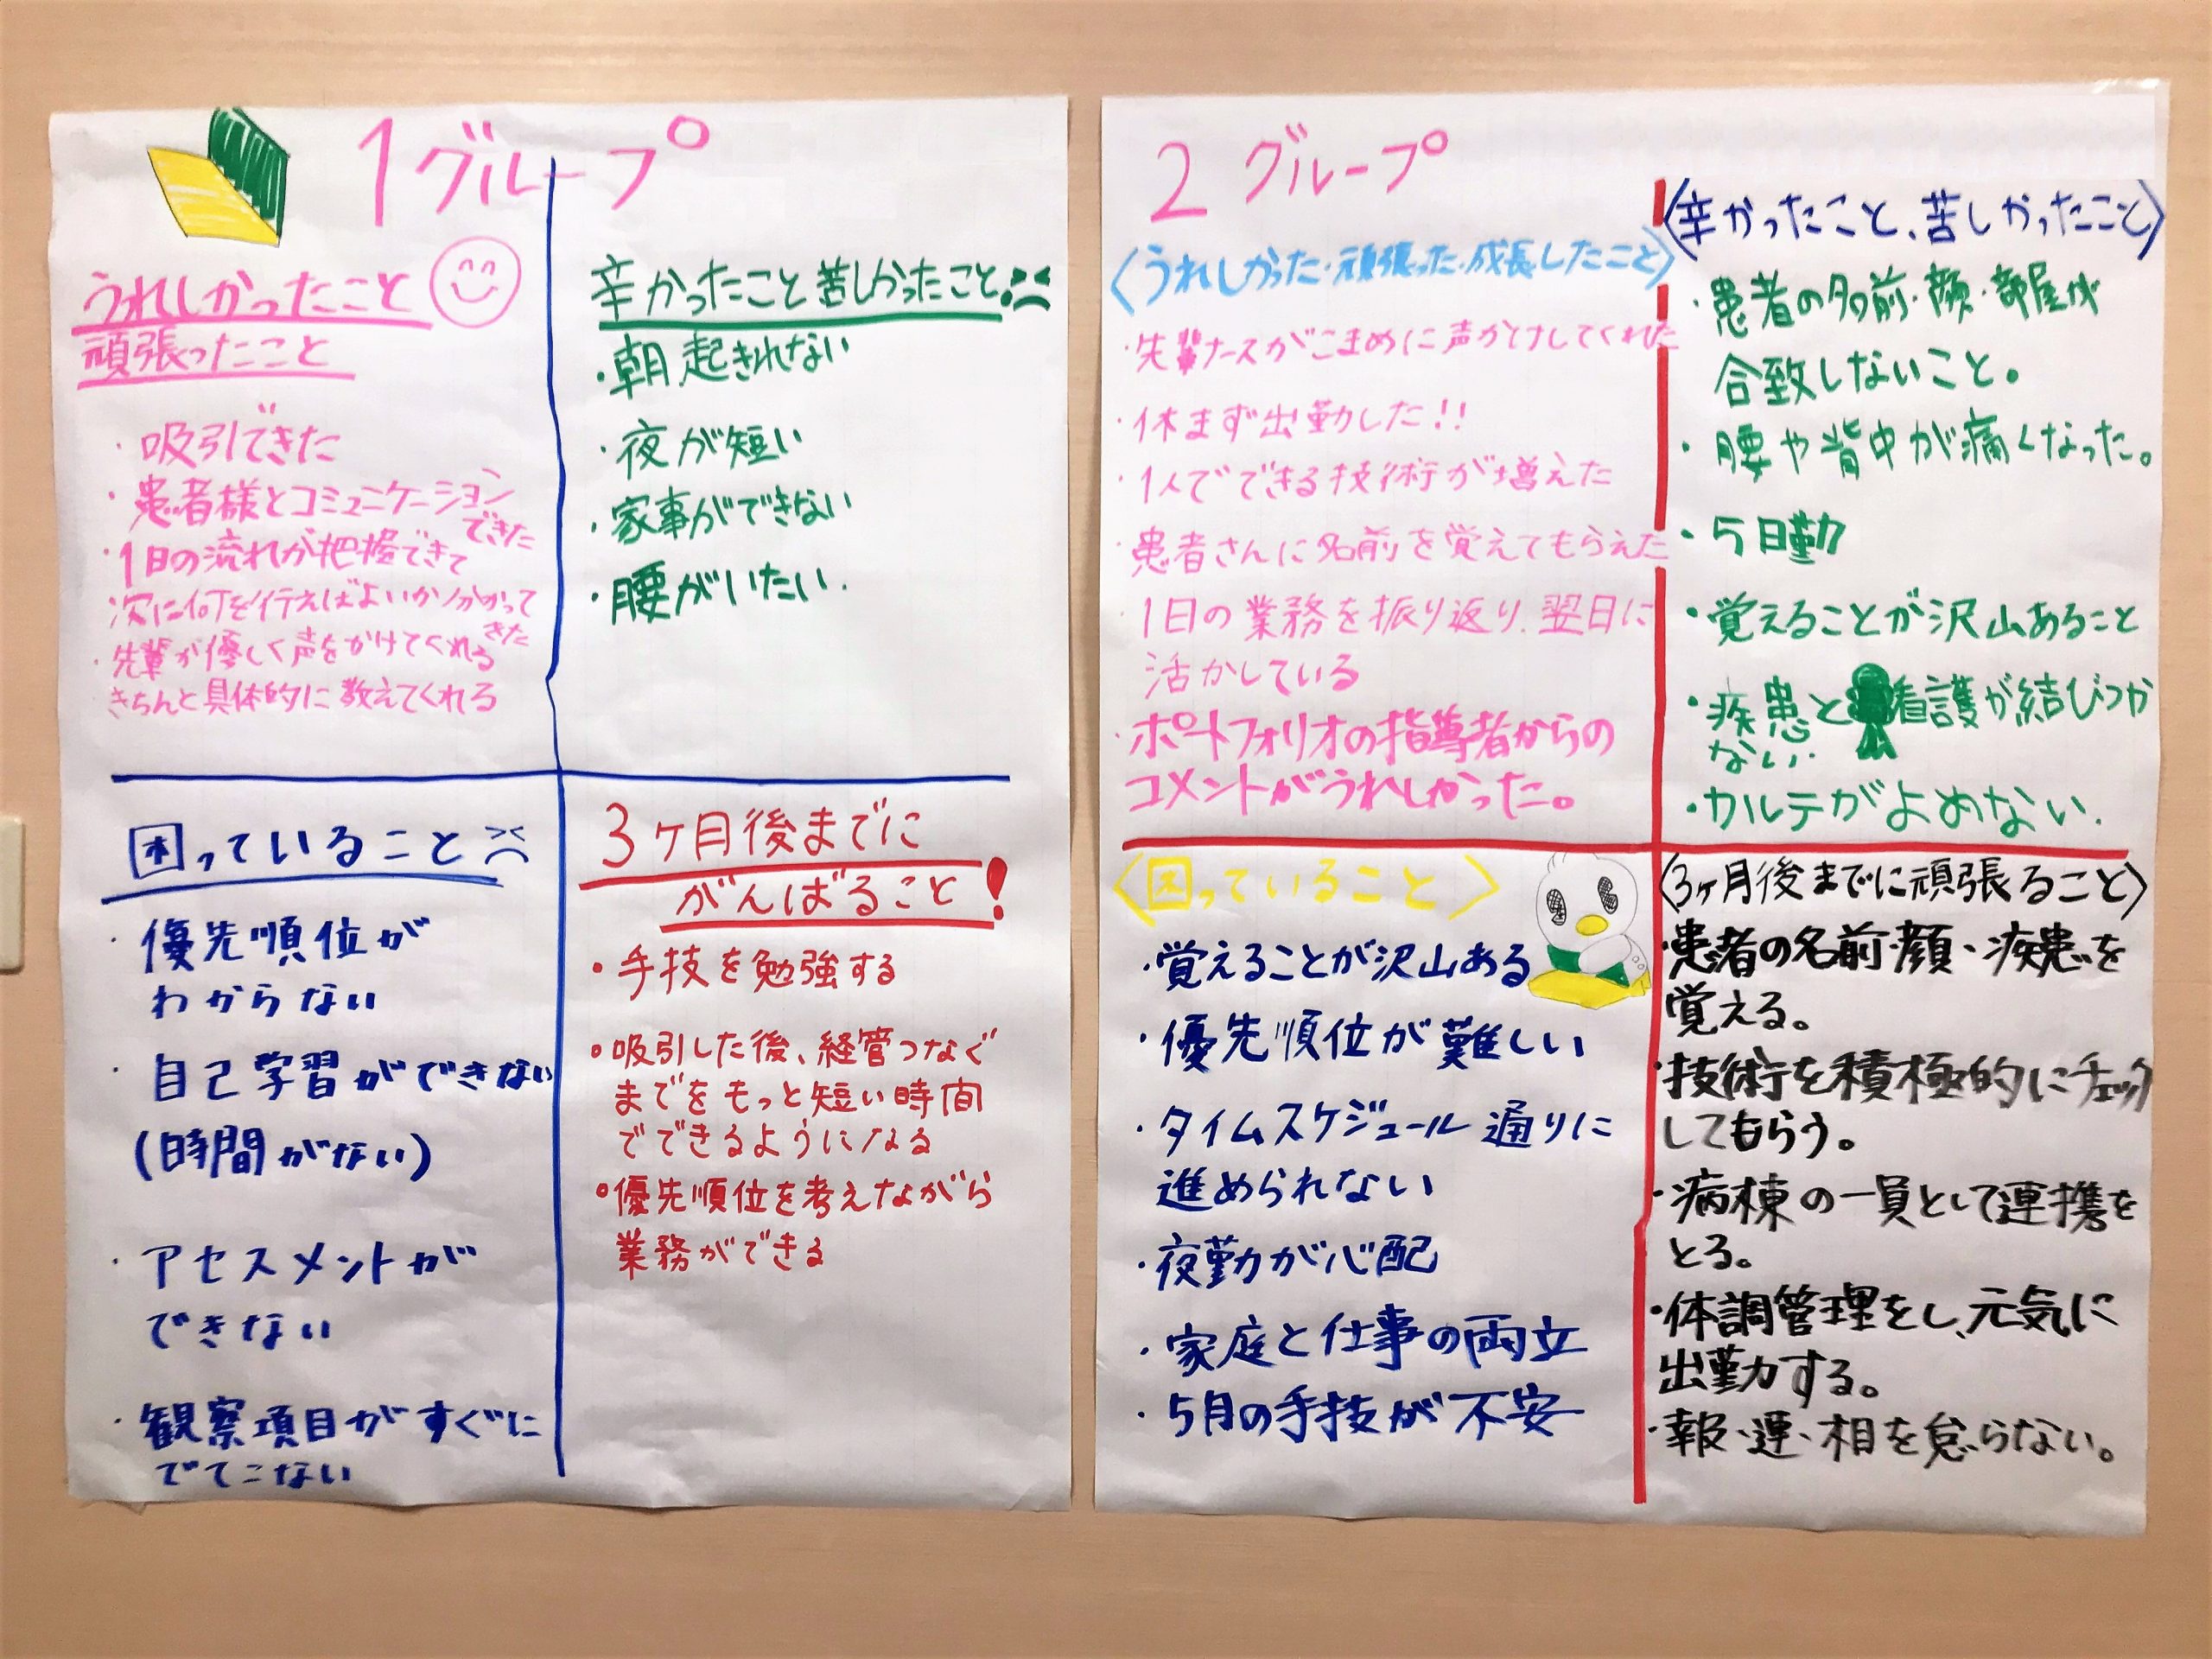 1グループ
うれしかったこと
頑張ったこと
・吸引できた
・患者様とコミュニケーション
できた
・1日の流れが把握できて
次に何を行えばよいか分かって
きた
・先輩が優しく声をかけてくれる
きちんと具体的に教えてくれる
辛かったこと苦しかったこと
・朝起きれない
・夜が短い
・家事ができない
・腰がいたい.
困っていること
・優先順位が
わからない
・自己学習ができない
(時間がない)
・アセスメントが
できない
・観察項目がすぐに
でてこない
3ヶ月後までに
がんばること!
・手技を勉強する
・吸引した後、経管つなぐ
までをもっと短い時間
でできるようになる
・優先順位を考えながら
業務ができる
2グループ
〈うれしかった・頑張った・成長したこと〉
・先輩ナースがこまめに声かけしてくれた
・休まず出勤した!!
・1人でできる技術が増えた
・患者さんに名前を覚えてもらえた
・1日の業務を振り返り、翌日に
活かしている
・ポートフォリオの指導者からの
コメントがうれしかった。
〈辛かったこと、苦しかったこと〉
・患者の名前・顔・部屋が
合致しないこと。
・腰や背中が痛くなった。
・5日勤
・覚えることが沢山あること
・疾患と看護が結びつか
ない.
・カルテがよめない.
〈困っていること〉
・覚えることが沢山ある
・優先順位が難しい
・タイムスケジュール通りに
進められない
・夜勤が心配
・家庭と仕事の両立
・5月の手技が不安
〈3ヶ月後までに頑張ること〉
・患者の名前・顔・疾患を
覚える。
・技術を積極的にチェック
してもらう。
・病棟の一員として連携を
とる。
・体調管理をし、元気に
出勤する。
・報・連・相を怠らない。